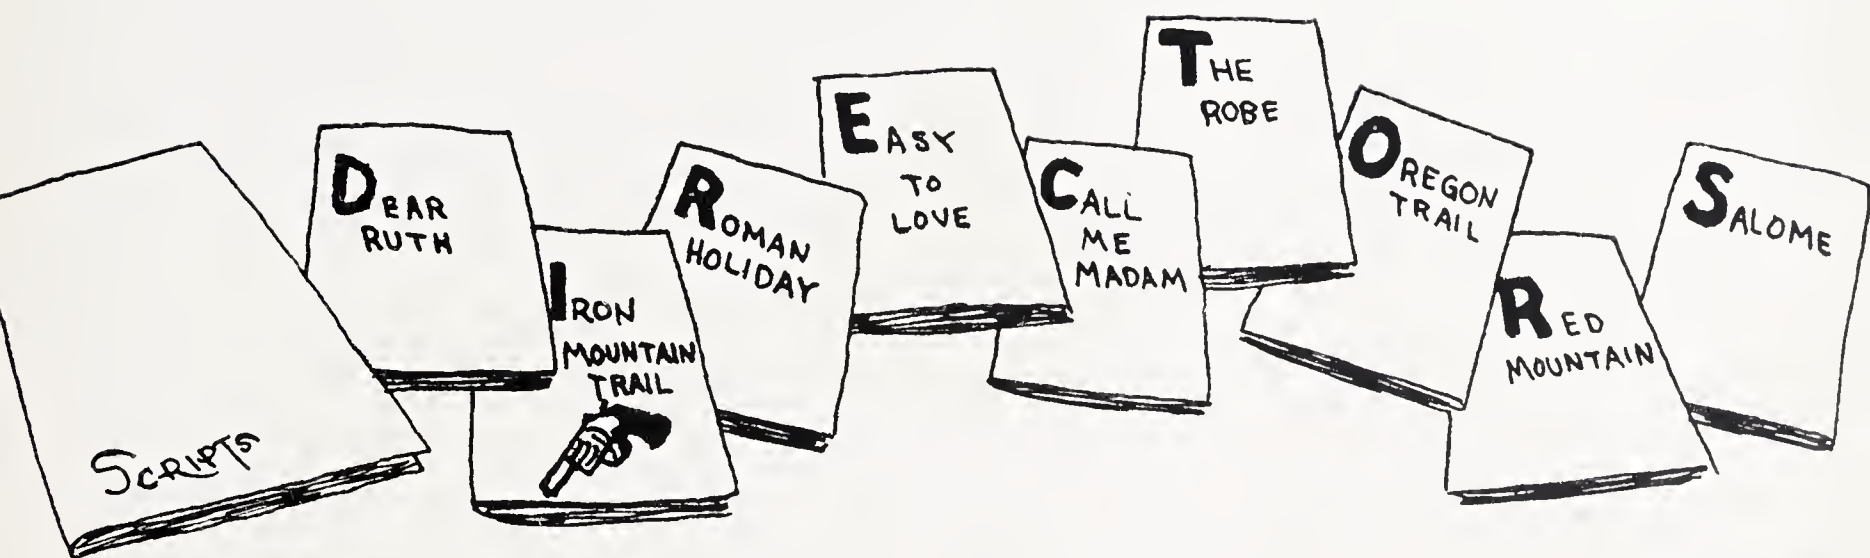 SCRIPTS
DEAR
RUTH
IRON
MOUNTAIN
TRAIL
ROMAN
HOLIDAY
EASY
TO
LOVE
CALL
ME
MADAM
THE
ROBE
OREGON
TRAIL
RED
MOUNTAIN
SALOME